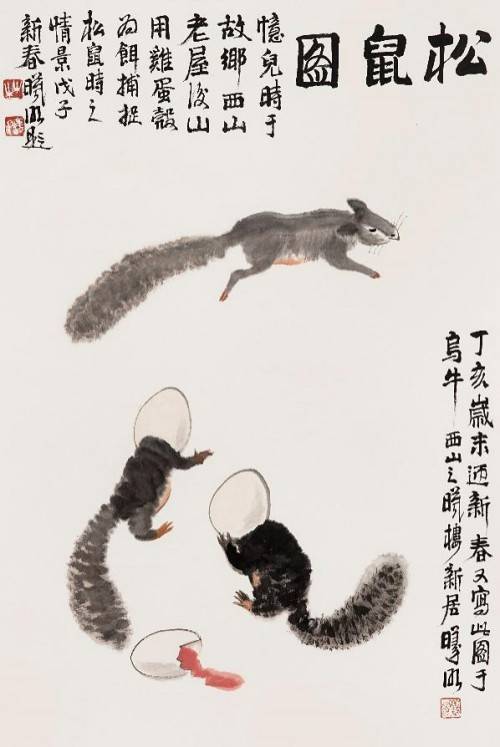 松鼠图
憶兒時于
故鄉西山
老屋後山
用雞蛋殼
为餌捕捉
松鼠時之
情景戊子
新春曦明题
丁亥歲末迎新春又寫此图于
烏牛西山之曦樓新居曦明